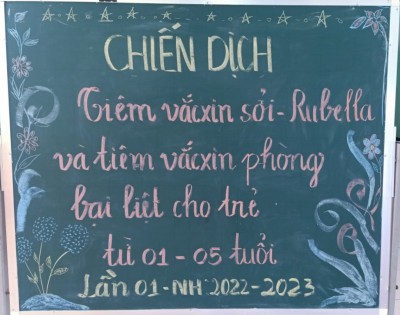 CHIẾN DỊCH
Tiêm vắcxin sởi - Rubella
và tiêm vắcxin phòng
bại liệt cho trẻ
từ 01 - 05 tuổi
Lần 01 - NH: 2022 - 2023